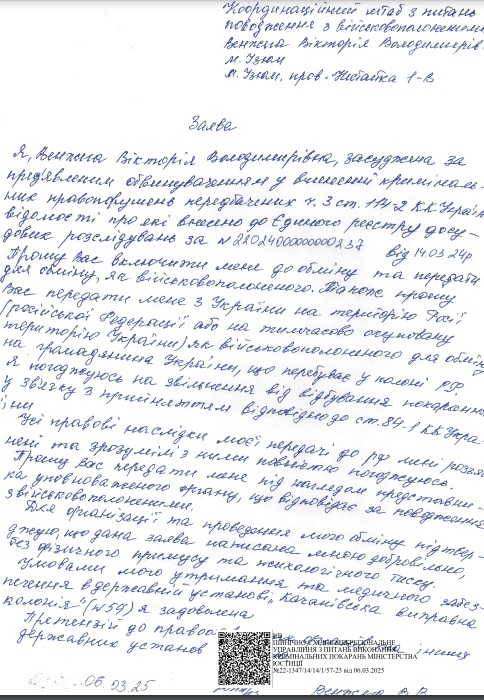 Координаційний штаб з питань
поводження з військовополоненими
Венжена Вікторія Володимирів-
м. Ізюм
м. Ізюм, пров. 1-В
Заява
Я, Венжена Вікторія Володимирівна, засуджена за
пред'явленим обвинуваченням у вчиненні криміналь-
них правопорушень передбачених ч. 3 ст. 114-2 КК Україн
відомості про які внесено до Єдиного реєстру досу-
дових розслідувань за № 22024000000000237 від 14.03.24р
Прошу Вас включити мене до обміну та передати
для обміну, як військовополоненого. Також прошу
Вас передати мене з України на територію Росії
(російської Федерації або на тимчасово окуповану
територію України) як військовополоненого для обміну
на громадянина України, що перебуває у полоні рф.
Я погоджуюсь на звільнення від відбування покарання
у зв'язку з прийняттям відповідно до ст. 84.1 КК Укра-
їни
Усі правові наслідки моєї передачі до рф мені роз'яс-
нені та зрозумілі з ними повністю погоджуюсь.
Прошу Вас передати мене під наглядом представни-
ка уповноваженого органу, що відповідає за поводження
з військовополоненими.
Для організації та проведення мого обміну підтвер-
джую, що дана заява написана мною добровільно,
без фізичного примусу та психологічного тиску.
Умовами мого утримання та медичного забез-
печення в державній установі „Качанівська виправна
колонія" (№54) я задоволена
Претензій до інших
державних установ
ПІВНІЧНО-СХІДНЕ МІЖРЕГІОНАЛЬНЕ
УПРАВЛІННЯ З ПИТАНЬ ВИКОНАННЯ
КРИМІНАЛЬНИХ ПОКАРАНЬ МІНІСТЕРСТВА
ЮСТИЦІЇ
№22-1347/14/14/1/57-25 від 06.03.2025
06.03.25